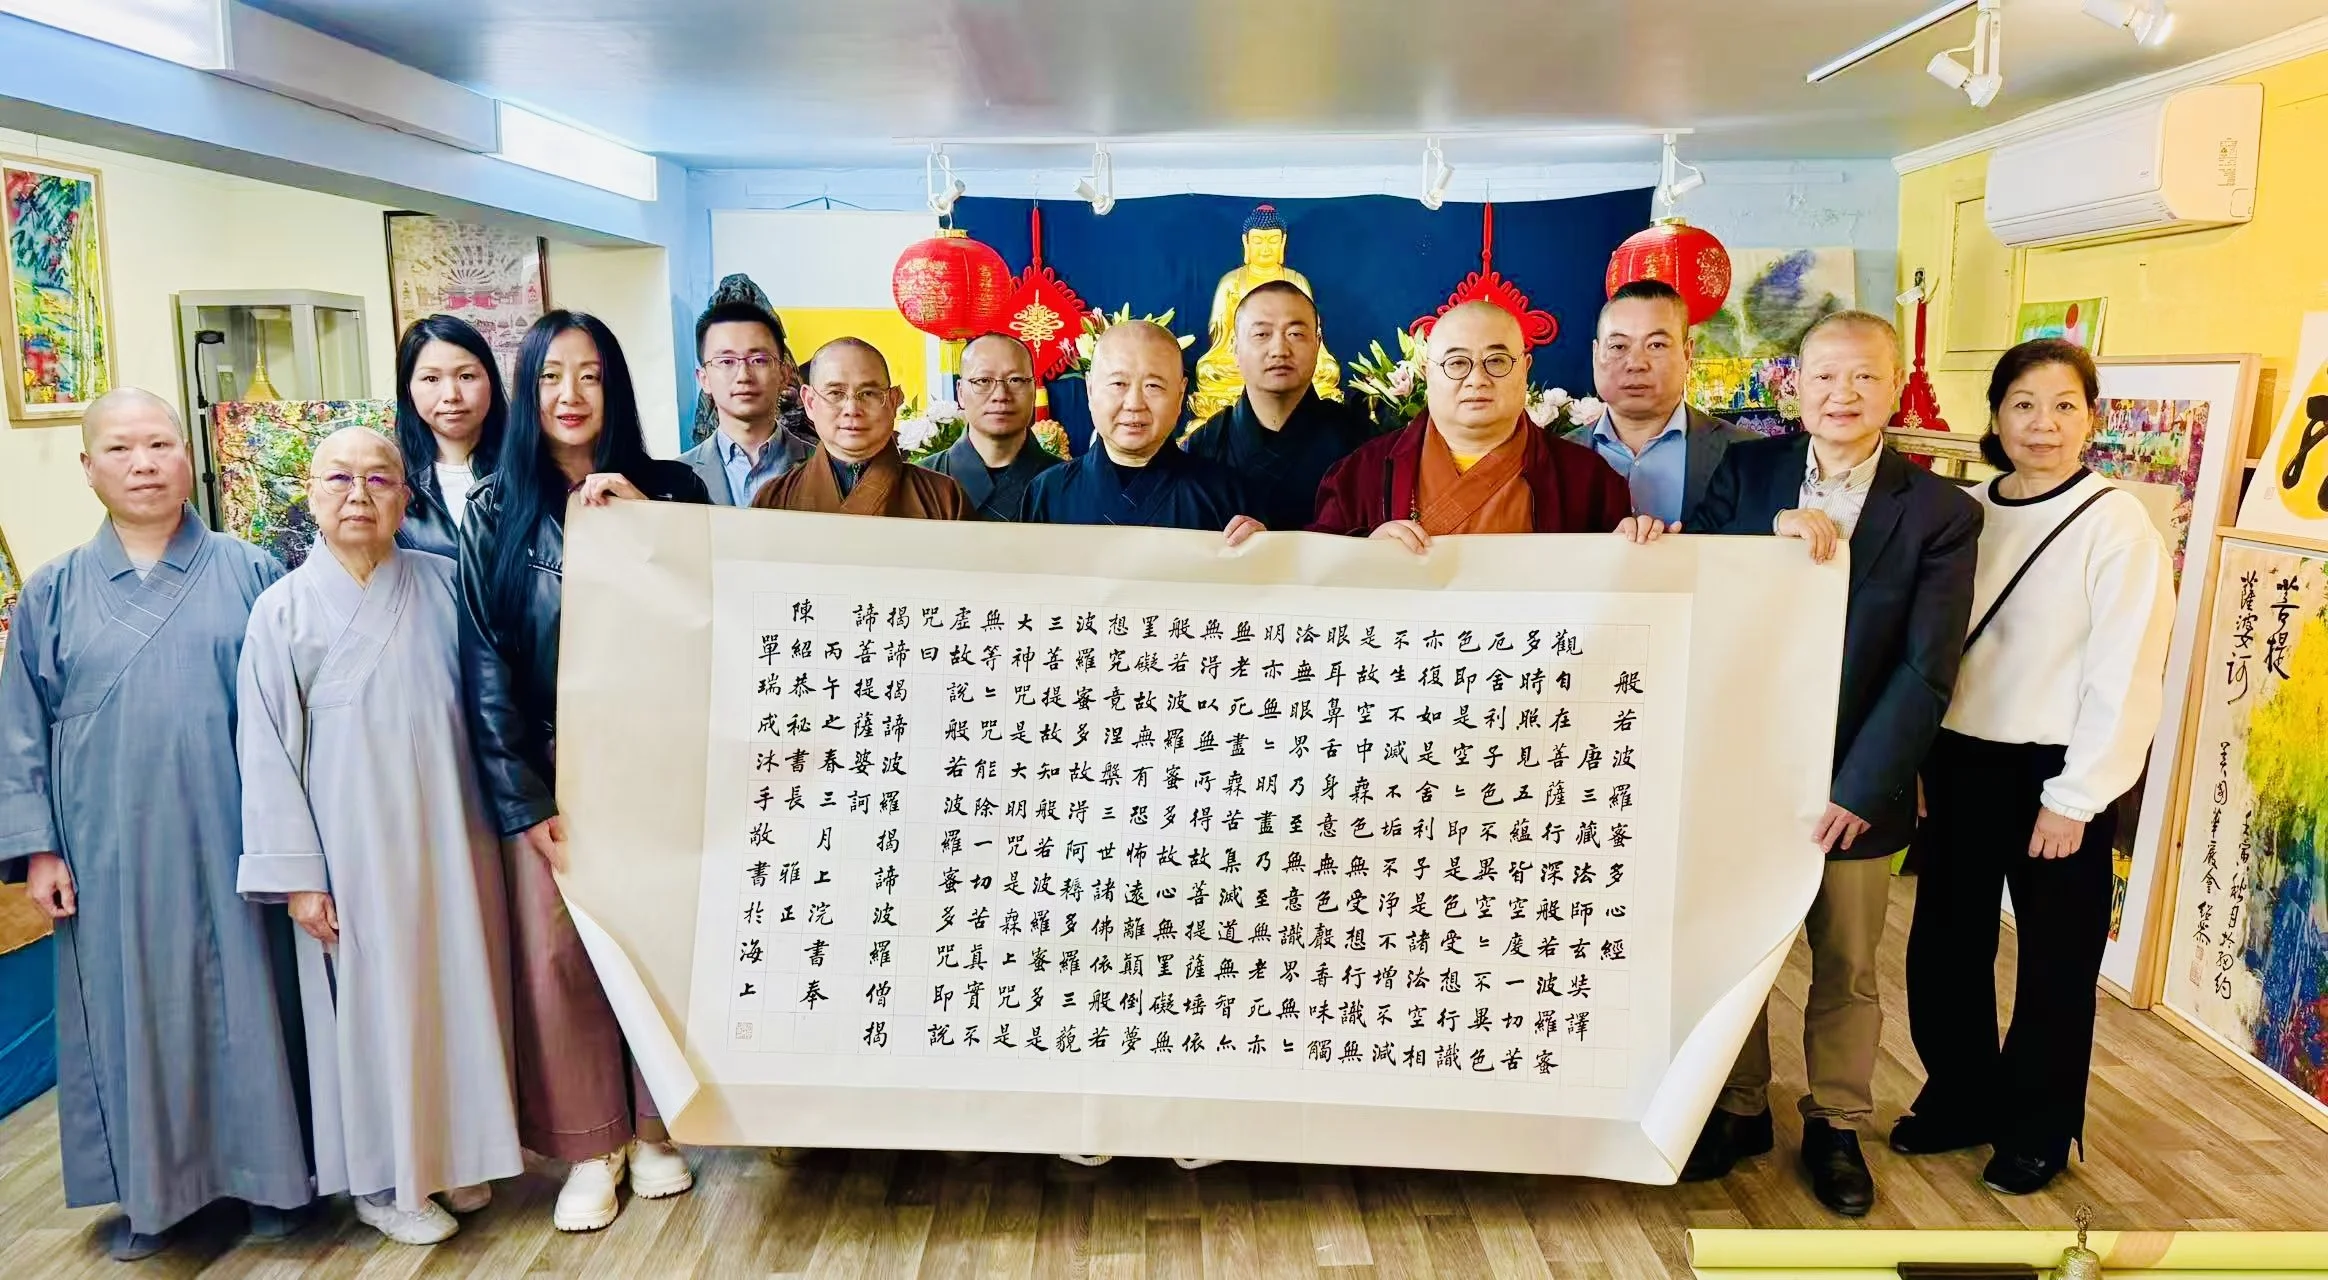 般若波羅蜜多心經
唐三藏法師玄奘譯
觀自在菩薩行深般若波羅蜜
多時照見五蘊皆空度一切苦
厄舍利子色不異空〻不異色
色即是空〻即是色受想行識
亦復如是舍利子是諸法空相
不生不滅不垢不淨不增不減
是故空中無色無受想行識無
眼耳鼻舌身意無色聲香味觸
法無眼界乃至無意識界無〻
明亦無〻明盡乃至無老死亦
無老死盡無苦集滅道無智亦
無得以無所得故菩提薩埵依
般若波羅蜜多故心無罣礙無
罣礙故無有恐怖遠離顛倒夢
想究竟涅槃三世諸佛依般若
波羅蜜多故得阿耨多羅三藐
三菩提故知般若波羅蜜多是
大神咒是大明咒是無上咒是
無等〻咒能除一切苦真實不
虛故說般若波羅蜜多咒即說
咒曰
揭諦揭諦波羅揭諦波羅僧揭
諦菩提薩婆訶
丙午之春三月上浣書奉
陳紹恭秘書長雅正
單瑞成沐手敬書於海上
菩提
薩婆訶
壬寅秋月於紐約
美國華嚴會